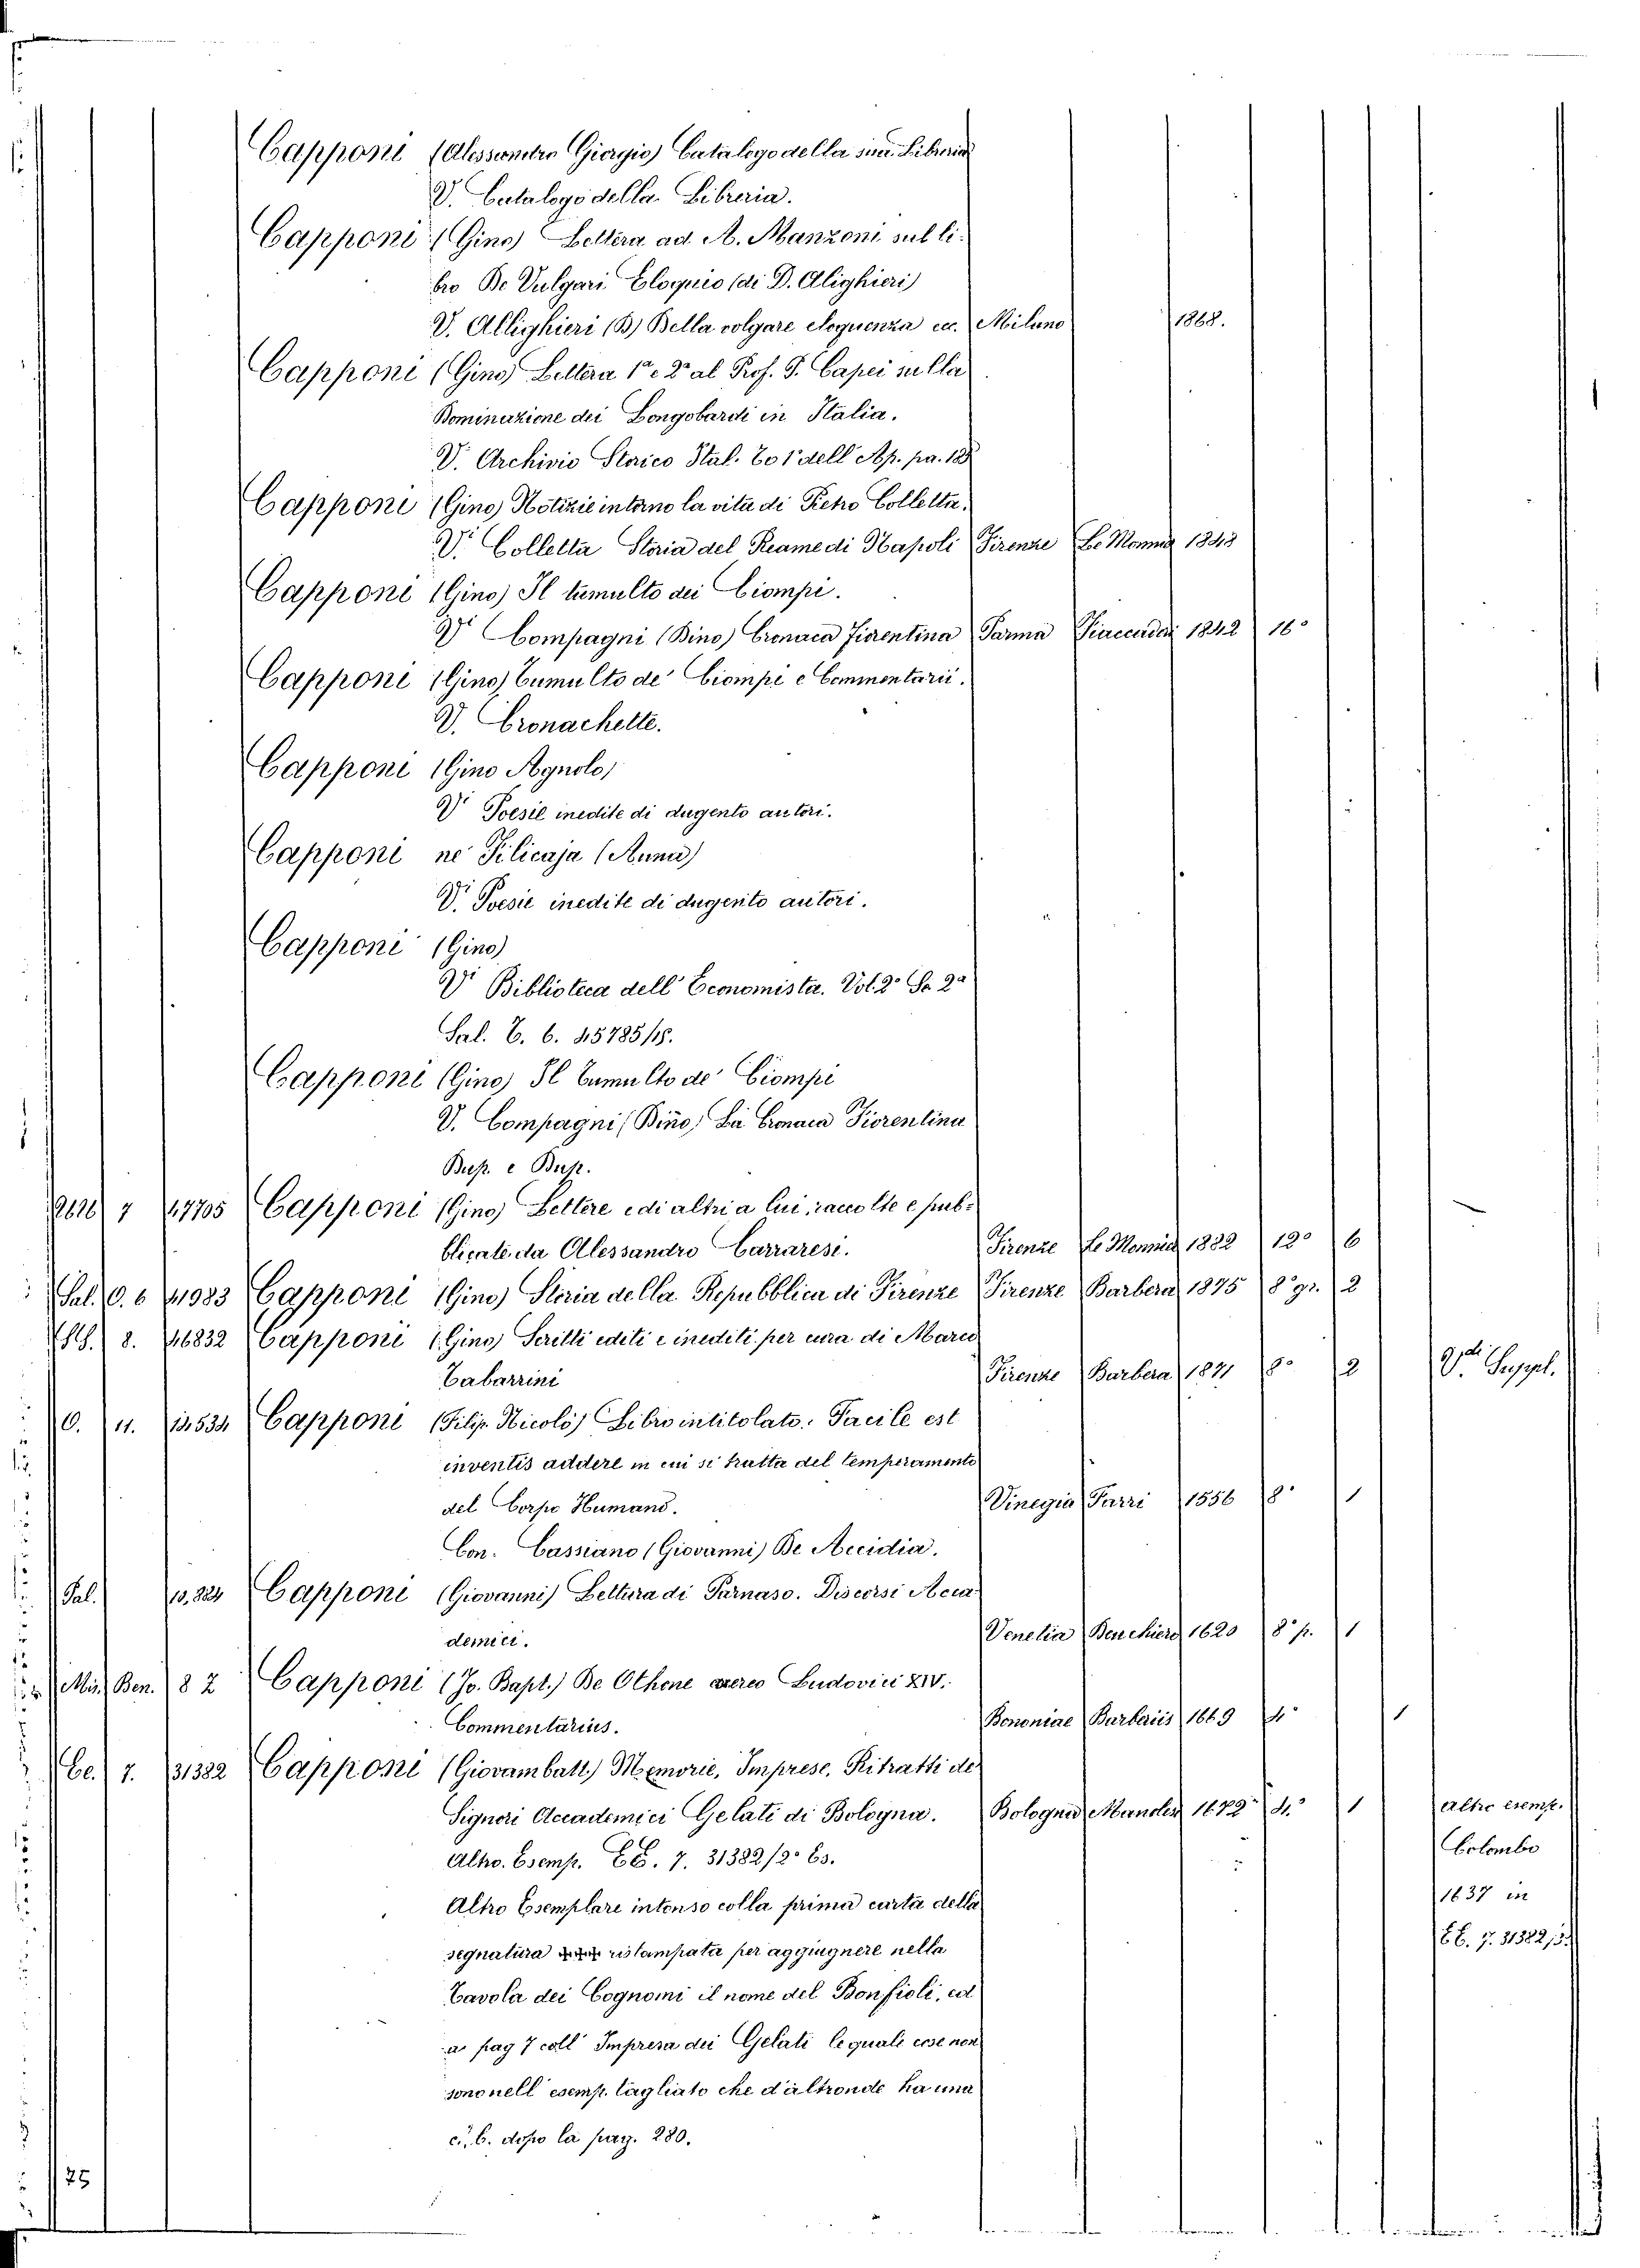 Capponi (Alessandro Giorgio) Catalogo della sua Libreria
V. Catalogo della Libreria.
Capponi (Gino) Lettera ad A. Manzoni sul li-
bro De Vulgari Eloquio (di D. Alighieri)
V. Allighieri (D) Della volgare eloquenza ec. Milano 1868.
Capponi (Gino) Lettera 1ª e 2ª al Prof. P. Capei sulla
Dominazione dei Longobardi in Italia.
V. Archivio Storico Ital. To 1° dell Ap. pa.
Capponi (Gino) Notizie intorno la vita di Pietro Colletta.
V. Colletta Storia del Reame di Napoli Firenze Le Monnier 1848
Capponi (Gino) Il tumulto dei Ciompi.
V. Compagni (Dino) Cronaca Fiorentina Parma Fiaccadori 1842 16°
Capponi (Gino) Tumulto de' Ciompi e Commentarii.
V. Cronachette.
Capponi (Gino Agnolo)
V. Poesie inedite di dugento autori.
Capponi ne' Filicaja (Anna)
V. Poesie inedite di dugento autori.
Capponi (Gino)
V. Biblioteca dell' Economista. Vol. 2° Se. 2ª
Sal. E. 6. 45785/18.
Capponi (Gino) Il Tumulto de' Ciompi
V. Compagni (Dino) La Cronaca Fiorentina
Dup. e Dup.
7 47705 Capponi (Gino) Lettere e di altri a lui, raccolte e pub-
blicate da Alessandro Carraresi. Firenze Le Monnier 1882 12° 6
Sal. O. 6 41983 Capponi (Gino) Storia della Repubblica di Firenze Firenze Barbera 1875 8° gr. 2
8. 46832 Capponi (Gino) Scritti editi e inediti per cura di Marco
Tabarrini Firenze Barbera 1871 8° 2 Vdi Suppl.
O. 11. 13,534 Capponi (Filip. Nicolò) Libro intitolato: Facile est
inventis addere in cui si tratta del temperamento
del Corpo Humano. Vinegia Farri 1556 8° 1
Con. Cassiano (Giovanni) De Accidia.
Pal. 10,324 Capponi (Giovanni) Lettura di Parnaso. Discorsi Acca-
demici. Venetia Deuchino 1620 8° p. 1
Mis. Ben. 8 2 Capponi (Jo. Bapt.) De Othone aereo Ludovici XIV.
Commentarius. Bononiae Barberiis 1669 4° 1
EE. 7. 31382 Capponi (Giovambatt.) Memorie, Imprese, Ritratti de'
Signori Accademici Gelati di Bologna. Bologna Manolessi 1672 4.° 1 altro esemp.
Altro. Esemp. EE. 7. 31382/2° Es. Colombo
Altro Esemplare intonso colla prima carta della 1637 in
segnatura ristampata per aggiugnere nella EE. 7. 31382/3.
Tavola dei Cognomi il nome del Bonfioli, ed
a pag 7 coll' Impresa dei Gelati le quali cose non
sono nell' esemp. tagliato che d'altronde ha una
c. b. dopo la pag. 280.
75